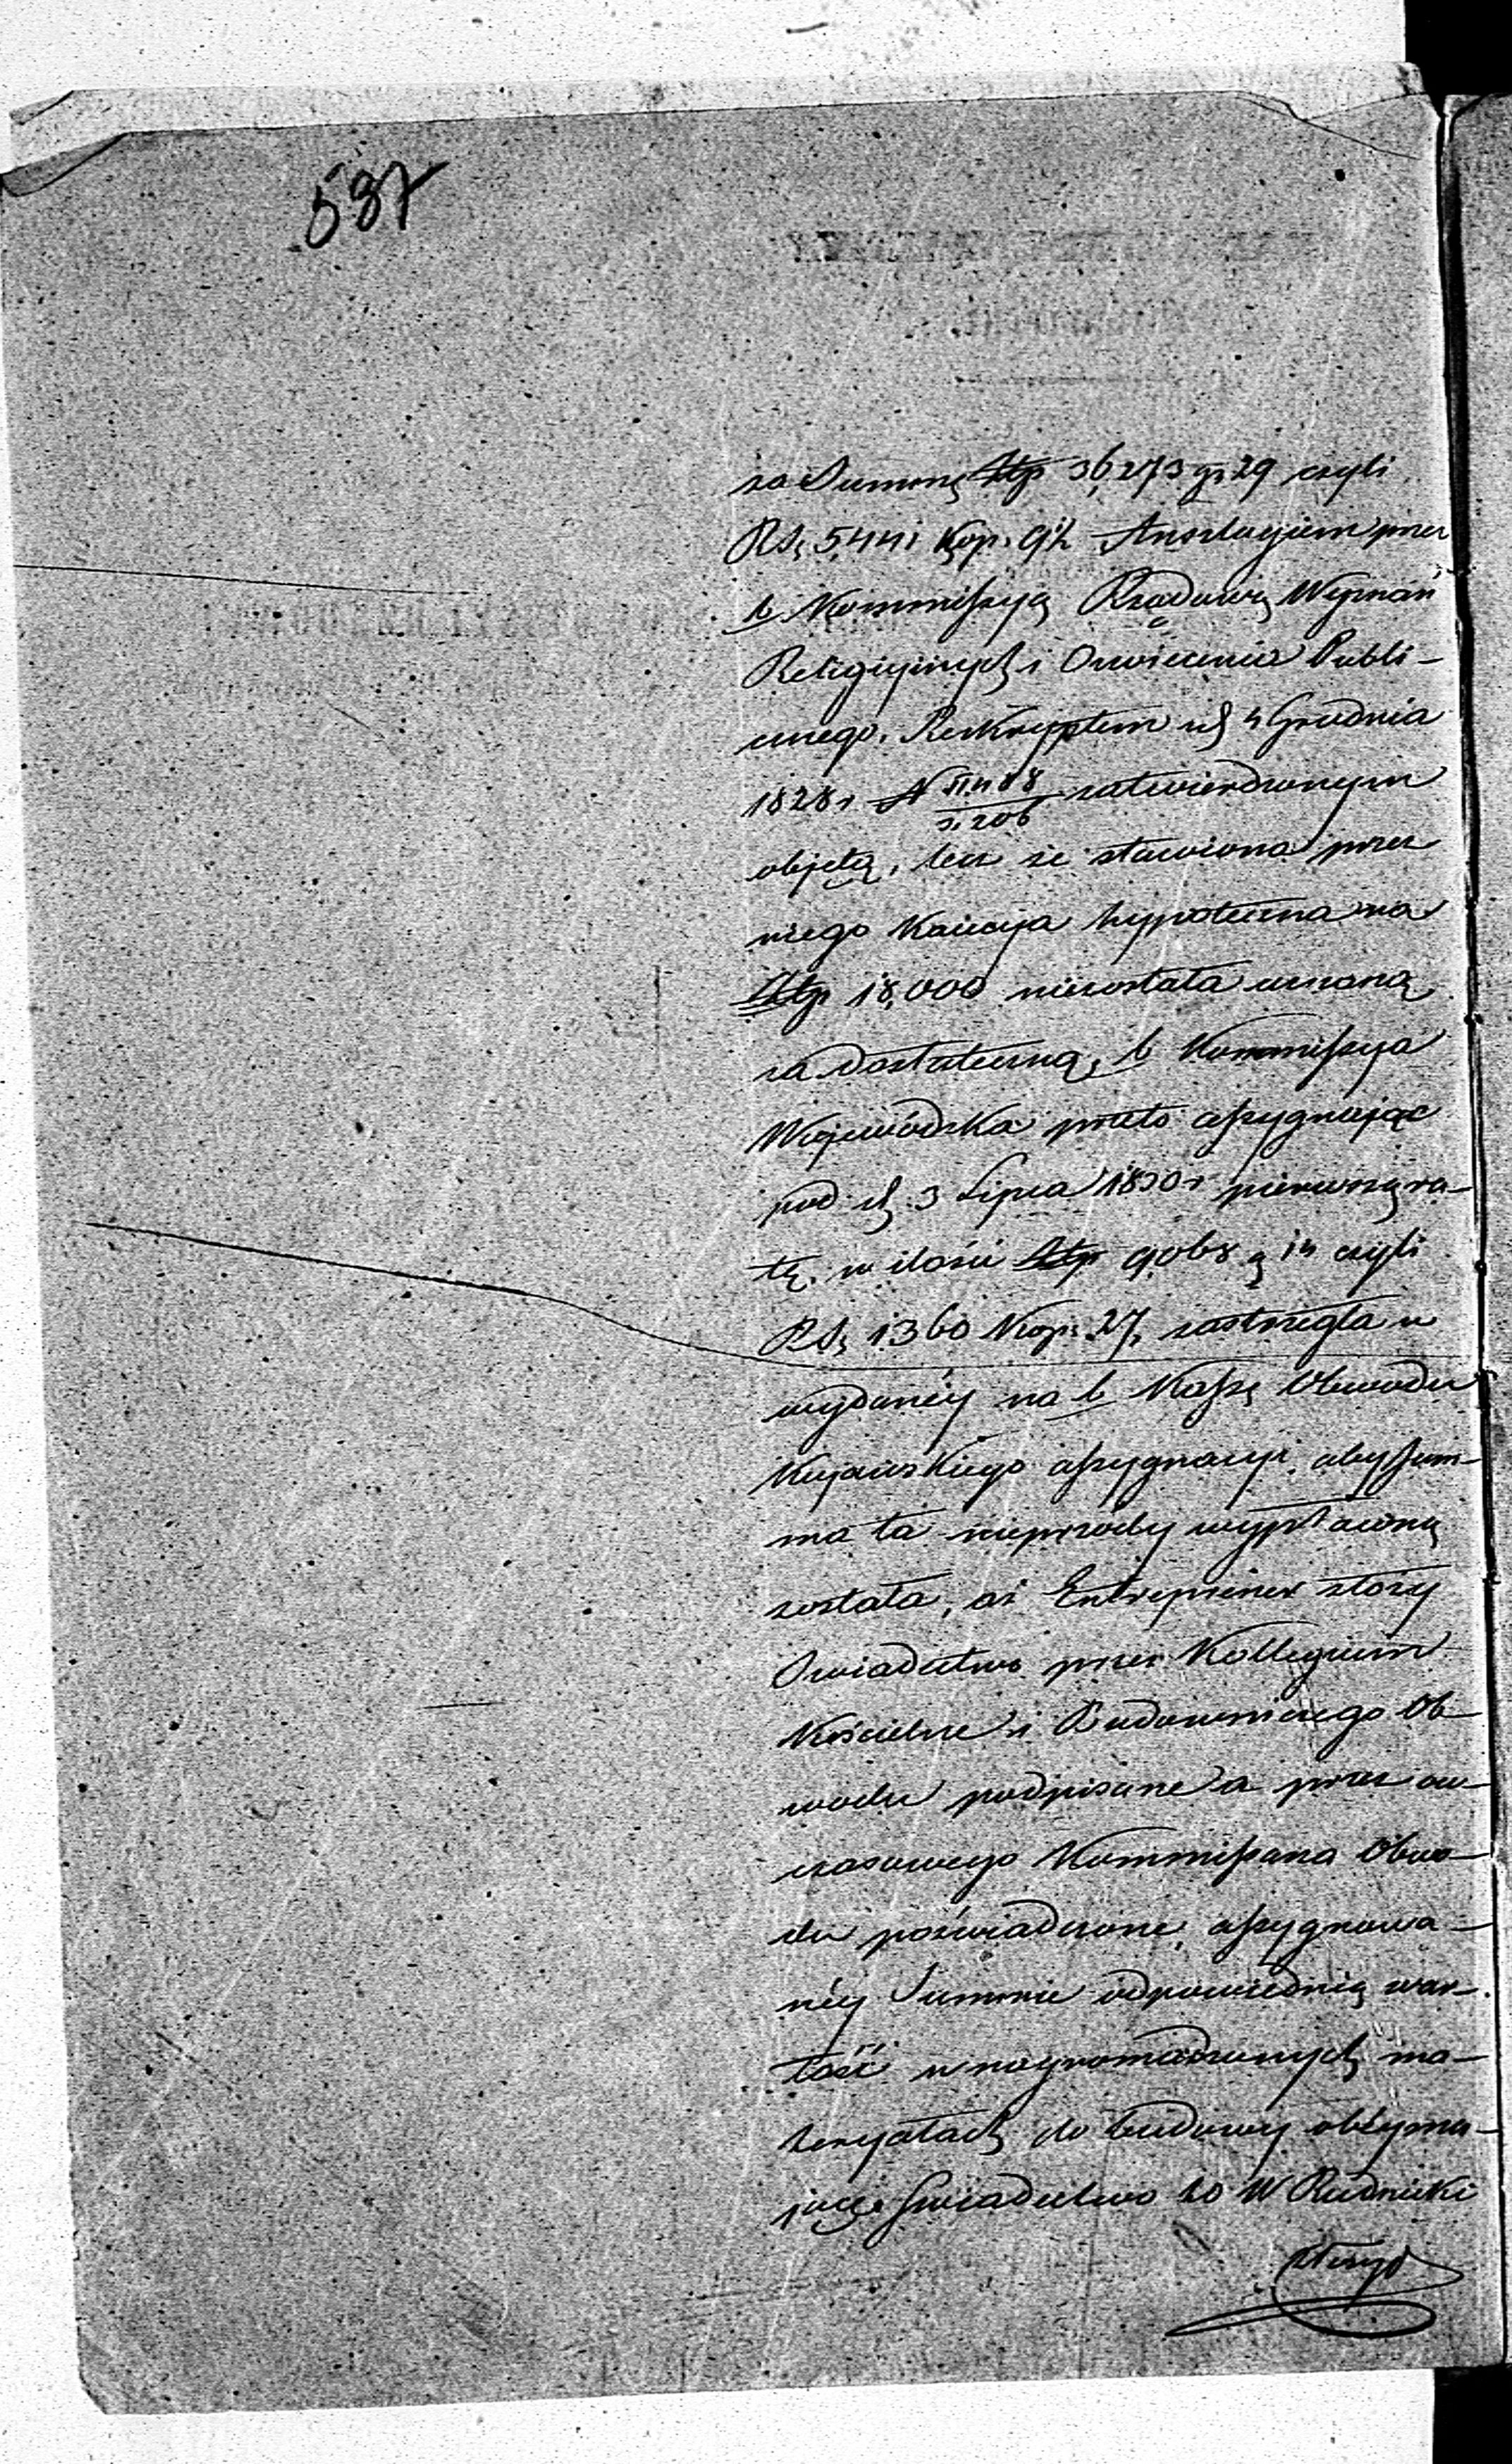 587
za Summę Złp 36,273 gr 29 czyli
RS. 5,441 Kop. 9½ Anszlagiem przez
b. Kommissyą Rządową Wyznań
Religijnych i Oswiecenia Publi-
cznego, Reskryptem z d. 4 Grudnia
1828 r N 11,488/3,206 zatwierdzonym
objętą, lecz że stawiona przez
niego Kaucya hypoteczna na
Złp 18,000 niezostała uznaną
za dostateczną, b Kommissya
Wojewódzka przeto assygnując
pod d. 3 Lipca 1830 r pierwszą ra-
tę w ilości Złp 9,068 g 14 czyli
RS. 1360 Kop. 27, zastrzegła w
wydanéy na b Kassę Obwodu
Kujawskiego assygnacyi, aby Sum-
ma ta nieprzódy wypłaconą
została, aż Entreprener złoży
Swiadectwo przez Kollegium
Kościelne i Budowniczego Ob-
wodu podpisane a przez ów-
czasowego Kommissarza Obwo-
du poświadczone, assygnowa-
néy Summie odpowiednią war-
tość w nagromadzonych ma-
teryałach do budowy obeyma-
jące Swiadectwo to W Rudnicki
złożył